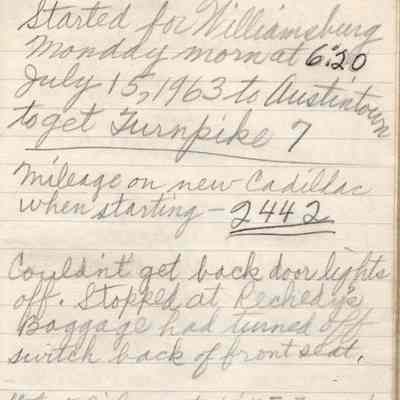 Started for Williamsburg
Monday morn at 6:20
July 15, 1963 to Austintown
to get Turnpike 7
Mileage on new Cadillac
when starting - 2442
Couldn't get back door lights
off. Stopped at
Baggage had turned off
switch back of front seat.